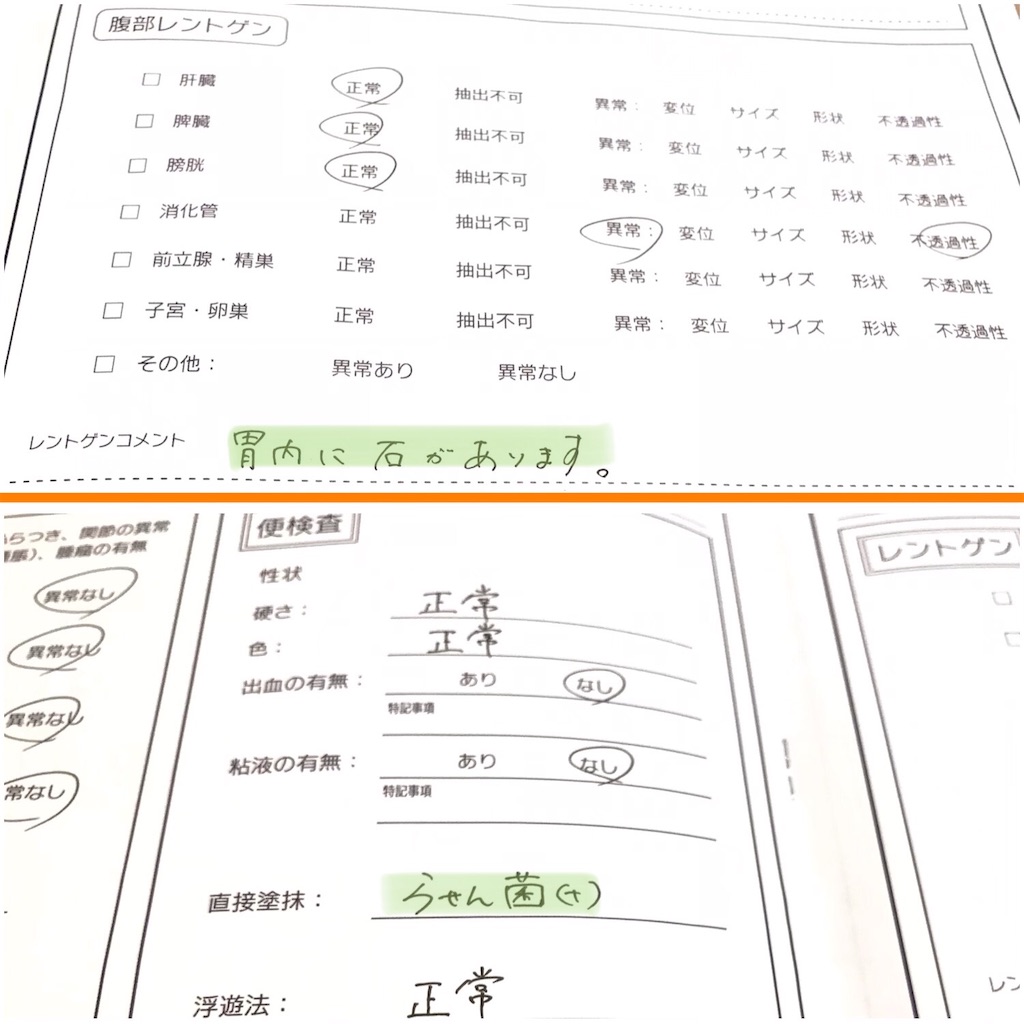 腹部レントゲン
□ 肝臓 正常 抽出不可 異常： 変位 サイズ 形状 不透過性
□ 脾臓 正常 抽出不可 異常： 変位 サイズ 形状 不透過性
□ 膀胱 正常 抽出不可 異常： 変位 サイズ 形状 不透過性
□ 消化管 正常 抽出不可 異常： 変位 サイズ 形状 不透過性
□ 前立腺・精巣 正常 抽出不可 異常： 変位 サイズ 形状 不透過性
□ 子宮・卵巣 正常 抽出不可 異常： 変位 サイズ 形状 不透過性
□ その他： 異常あり 異常なし
レントゲンコメント 胃内に石があります。
らつき、関節の異常
脹）、腫瘤の有無
異常なし
異常なし
異常なし
常なし
便検査
性状
硬さ： 正常
色： 正常
出血の有無： あり なし
特記事項
粘液の有無： あり なし
特記事項
直接塗抹： らせん菌(+)
浮遊法： 正常
レントゲン
レン